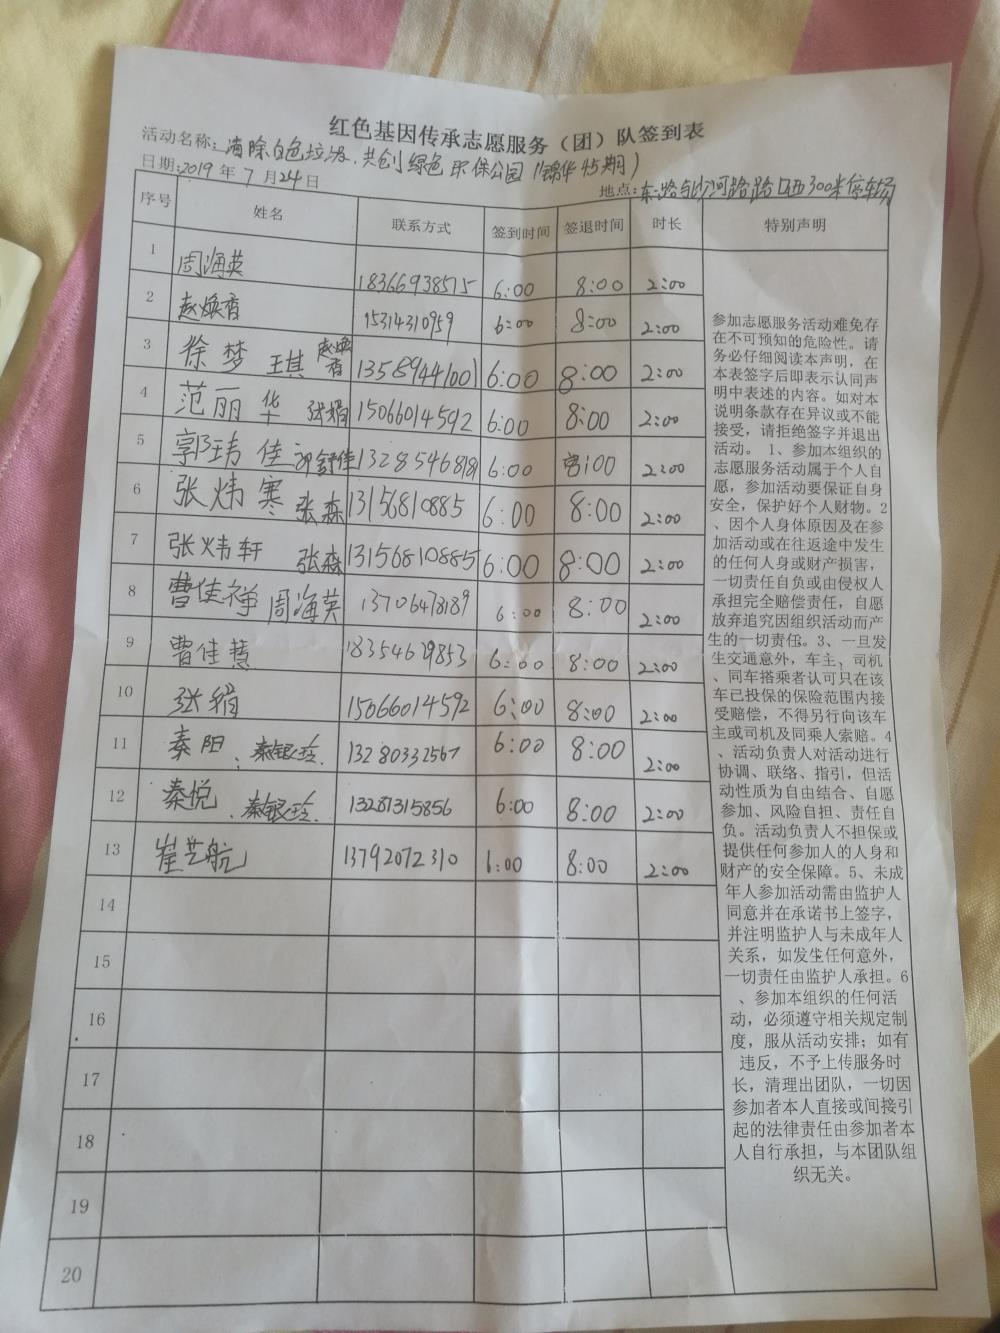 红色基因传承志愿服务（团）队签到表
活动名称：清除白色垃圾，共创绿色环保公园（锦华45期）
日期：2019年7月24日
地点：东二路与沙河路路口西300米停车场
序号 姓名 联系方式 签到时间 签退时间 时长 特别声明
1 周海英 18366938515 6:00 8:00 2:00
2 赵焕香 15314310959 6:00 8:00 2:00
3 徐梦王琪 赵焕香 13589441001 6:00 8:00 2:00
4 范丽华 张娟 15066014592 6:00 8:00 2:00
5 郭玮佳 13285468181 6:00 8:00 2:00
6 张炜寒 张森 13156810885 6:00 8:00 2:00
7 张炜轩 张森 13156810885 6:00 8:00 2:00
8 曹佳禅 周海英 13706478189 6:00 8:00 2:00
9 曹佳慧 18354679853 6:00 8:00 2:00
10 张娟 15066014592 6:00 8:00 2:00
11 秦阳，秦银玲. 13280332567 6:00 8:00 2:00
12 秦悦．秦银玲． 13281315856 6:00 8:00 2:00
13 崔艺航 13792072310 6:00 8:00 2:00
14
15
16
17
18
19
20
参加志愿服务活动难免存
在不可预知的危险性。请
务必仔细阅读本声明，在
本表签字后即表示认同声
明中表述的内容。如对本
说明条款存在异议或不能
接受，请拒绝签字并退出
活动。 1、参加本组织的
志愿服务活动属于个人自
愿，参加活动要保证自身
安全，保护好个人财物。2
、因个人身体原因及在参
加活动或在往返途中发生
的任何人身或财产损害，
一切责任自负或由侵权人
承担完全赔偿责任，自愿
放弃追究因组织活动而产
生的一切责任。3、一旦发
生交通意外，车主、司机
、同车搭乘者认可只在该
车已投保的保险范围内接
受赔偿，不得另行向该车
主或司机及同乘人索赔。4
、活动负责人对活动进行
协调、联络、指引，但活
动性质为自由结合、自愿
参加、风险自担、责任自
负。活动负责人不担保或
提供任何参加人的人身和
财产的安全保障。5、未成
年人参加活动需由监护人
同意并在承诺书上签字，
并注明监护人与未成年人
关系，如发生任何意外，
一切责任由监护人承担。6
、参加本组织的任何活
动，必须遵守相关规定制
度，服从活动安排；如有
违反，不予上传服务时
长，清理出团队，一切因
参加者本人直接或间接引
起的法律责任由参加者本
人自行承担，与本团队组
织无关。